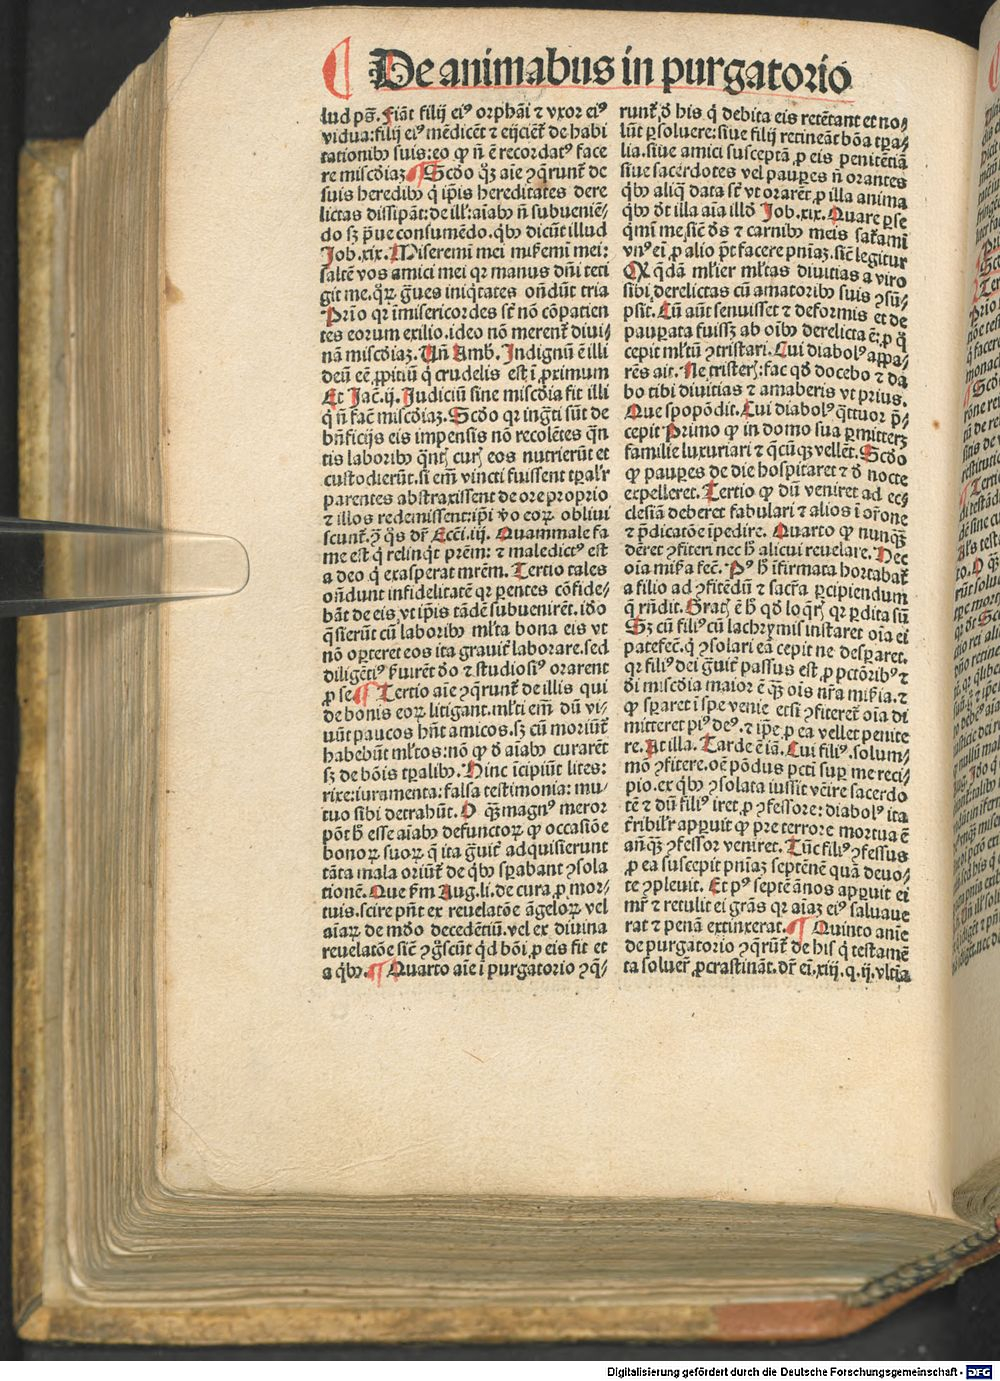 De animabus in purgatorio
lud ps̄. Fiāt filij eiꝰ orphāi ⁊ vxor eiꝰ
vidua: filij eiꝰ mēdicēt ⁊ eijciēt̃ de habi
tationibꝰ suis: eo ꝙ ñ ē recordatꝰ face
re miscḋiaꝫ. ¶ Scḋo qꝫ aīe ꝯqrunt̃ de
suis heredibꝰ q̇ ip̄is hereditates dere
lictas dissipāt: de ill̃: aīabꝰ ñ subueniē⸗
do sꝫ p̄ue consumēdo. qbꝰ dicūt illud
Job. xix. Miseremi mei mis̃emi mei:
saltē vos amici mei qꝛ manus dn̄i teti
git me. q̇ꝝ g̈ues iniqtates oñdūt tria
Prīo qꝛ īmisericordes st̃ nō cōpatien
tes eorum exilio. ideo nō merent̃ diui⸗
nā miscḋiaꝫ. Uñ Amb. Indignū ē illi
deū eē ꝓpitiū q̇ crudelis est ī ꝓximum
Et Jac̄. ij. Judiciū sine miscḋia fit illi
q̇ ñ fac̄ miscḋiaꝫ. Scḋo qꝛ ing̈ti sūt de
bn̄ficijs eis impensis nō recolētes q̄n
tis laboribꝰ q̄ntꝭ curꝭ eos nutrierūt et
custodierūt. si em̄ vincti fuissent tꝑal̃r
parentes abstraxissent de ore proprio
⁊ illos redemissent: ip̄i v̊o eoꝝ obliui
scunt̃. ꝯ̄ q̇s dr̃ Ecc̄i. iij. Quam male fa
me est q̇ relinqt prēm: ⁊ maledictꝰ est
a deo q̇ exasperat mrēm. Tertio tales
oñdunt infidelitatē qꝛ ꝑentes cōfide⸗
bāt de eis, vt ip̄is tādē subuenirēt. iḋo
q̄sierūt cū laboribꝰ ml̃ta bona eis vt
nō oꝑteret eos ita grauit̃ laborare. sed
diligētiꝰ ẜuirēt ḋo ⁊ studiosiꝰ orarent
ꝓ se. ¶ Tertio aīe ꝯqrunt̃ de illis qui
de bonis eoꝝ litigant. ml̃ti em̄ dū vi⸗
uūt paucos hn̄t amicos. sꝫ cū moriūt̃
habebūt ml̃tos: nō ꝙ ḋ aīabꝰ curarēt
sꝫ de bōis tꝑalibꝰ. Hinc īcipiūt lites:
rixe: iuramenta: falsa testimonia: mu⸗
tuo sibi detrahūt. O qꝫ magnꝰ meror
pōt ħ esse aīabꝰ defunctoꝝ ꝙ occasiōe
bonoꝝ suoꝝ q̄ ita g̈uit̃ adquisierunt
tāta mala oriūt̃ de qbꝰ sꝑabant ꝯsola
tionē. Que ẜm Aug. li. de cura ꝓ mor⸗
tuis. scire pn̄t ex reuelatōe āgeloꝝ vel
aīaꝝ de mūdo decedētiū. vel ex diuina
reuelatōe sic̄ ꝯg̈scūt qd bōi ꝓ eis fit et
a qbꝰ. ¶ Quarto aīe ī purgatorio ꝯq̄⸗
runt̃ ḋ his q̇ debita eis retētant et no⸗
lūt ꝑsoluere: siue filij retineāt bōa tꝑa⸗
lia. siue amici susceptā ꝓ eis penitētiā
siue sacerdotes vel pauꝑes ñ orantes
qbꝰ aliq̇ data st̃ vt orarēt ꝓ illa anima
qbꝰ dt̄ illa aīa illḋ Job. xix. Quare ꝑse
qmī me sic̄ ds̄ ⁊ carnibꝰ meis sat̃ami
vnꝰ ei ꝓ alio p̄t facere pn̄iaꝫ. sic̄ legitur
Qꝫ qdā ml̃ier ml̃tas diuitias a viro
sibi derelictas cū amatoribꝰ suis ꝯsū⸗
psit. Cū aūt senuisset ⁊ deformis et de
pauꝑata fuissꝫ ab oībꝰ derelicta ē: ꝓ q̊
cepit ml̃tū ꝯtristari. Cui diabolꝰ appa⸗
rēs ait. Ne tristerꝭ: fac qḋ docebo ⁊ da
bo tibi diuitias ⁊ amaberis vt prius.
Que spopōdit. Cui diabolꝰ q̈ttuor p̄⸗
cepit Primo ꝙ in domo sua ꝑmitterꝫ
familie luxuriari ⁊ qcūqꝫ vellēt. Scḋo
ꝙ pauꝑes de die hospitaret ⁊ ḋ nocte
expelleret. Tertio ꝙ dū veniret ad ec⸗
clesiā deberet fabulari ⁊ alios ī or̄one
⁊ p̄dicatōe īpedire. Quarto ꝙ nunqꝫ
dēret ꝯfiteri nec ħ alicui reuelare. Hec
oīa mis̃a fec̄. Pꝰ ħ īfirmata hortabat̃
a filio ad ꝯfitēdū ⁊ sacr̄a ꝑcipiendum
q̄ rn̄dit. Gratꝭ ē ħ qḋ loqrꝭ qꝛ ꝑdita sū
Sꝫ cū filiꝰ cū lachrymis instaret oīa ei
patefec̄. q̇ ꝯsolari eā cepit ne desꝑaret.
qꝛ filiꝰ dei g̈uit̃ passus est ꝓ pctōribꝰ ⁊
di miscḋia maior ē qꝫ oīs nr̄a mis̃ia. ⁊
ꝙ sꝑaret ī spe venie etsi ꝯfiteret̃ oīa di
mitteret piꝰ deꝰ. ⁊ ip̄e ꝓ ea vellet penite
re. At illa. Tarde ē iā. Cui filiꝰ. solum⸗
mō ꝯfitere. oē pōdus pcti suꝑ me reci⸗
pio. ex qbꝰ ꝯsolata iussit vēire sacerdo
tē ⁊ dū filiꝰ iret ꝓ ꝯfessore: diabolꝰ ita
t̃ribilr̃ apꝑuit ꝙ pre terrore mortua ē
añqꝫ ꝯfessor veniret. Tūc filiꝰ ꝯfessus
ꝓ ea suscepit pn̄iaꝫ septēnē quā deuo⸗
te ꝯpleuit. Et pꝰ septē ānos apꝑuit ei
mr̄ ⁊ retulit ei gr̄as qꝛ aīaꝫ eiꝰ saluaue
rat ⁊ penā extinxerat. ¶ Quinto anīe
de purgatorio ꝯqrūt̃ de his q̇ testamē
ta soluer̄ ꝓcrastināt. dr̃ ei. xiij. q. ij. vltīa
Digitalisierung gefördert durch die Deutsche Forschungsgemeinschaft - DFG